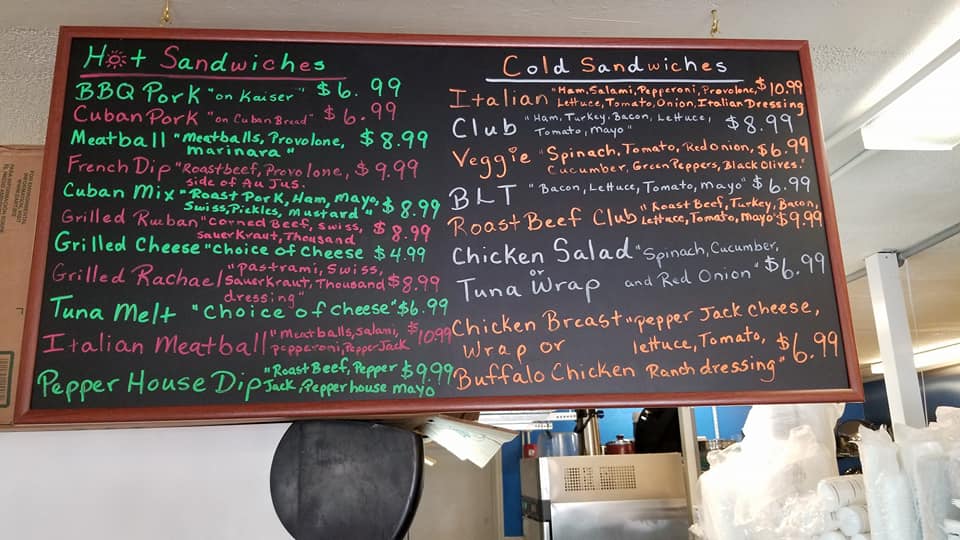 Hot Sandwiches
BBQ Pork "on Kaiser" $6.99
Cuban Pork "on Cuban Bread" $6.99
Meatball "Meatballs, Provolone, $8.99
marinara"
French Dip "Roastbeef, Provolone, $9.99
side of Au Jus.
Cuban Mix "Roast Pork, Ham, Mayo, $8.99
Swiss, Pickles, Mustard"
Grilled Rueban "Corned Beef, Swiss, $8.99
Sauerkraut, Thousand
Grilled Cheese "Choice of Cheese $4.99
Grilled Rachael "Pastrami, Swiss,
Sauerkraut, Thousand $8.99
dressing"
Tuna Melt "Choice of Cheese" $6.99
Italian Meatball "Meatballs, Salami, $10.99
pepperoni, Pepper Jack
Pepper House Dip "Roast Beef, Pepper $9.99
Jack, Pepper house mayo
Cold Sandwiches
Italian "Ham, Salami, Pepperoni, Provolone, $10.99
Lettuce, Tomato, Onion, Italian Dressing
Club "Ham, Turkey, Bacon, Lettuce, $8.99
Tomato, Mayo"
Veggie "Spinach, Tomato, Red onion, $6.99
Cucumber, Green Peppers, Black Olives."
BLT "Bacon, Lettuce, Tomato, Mayo" $6.99
Roast Beef Club "Roast Beef, Turkey, Bacon,
lettace, Tomato, Mayo" $9.99
Chicken Salad "Spinach, Cucumber,
or
Tuna Wrap and Red Onion" $6.99
Chicken Breast "pepper Jack cheese,
Wrap or lettuce, Tomato, $6.99
Buffalo Chicken Ranch dressing"